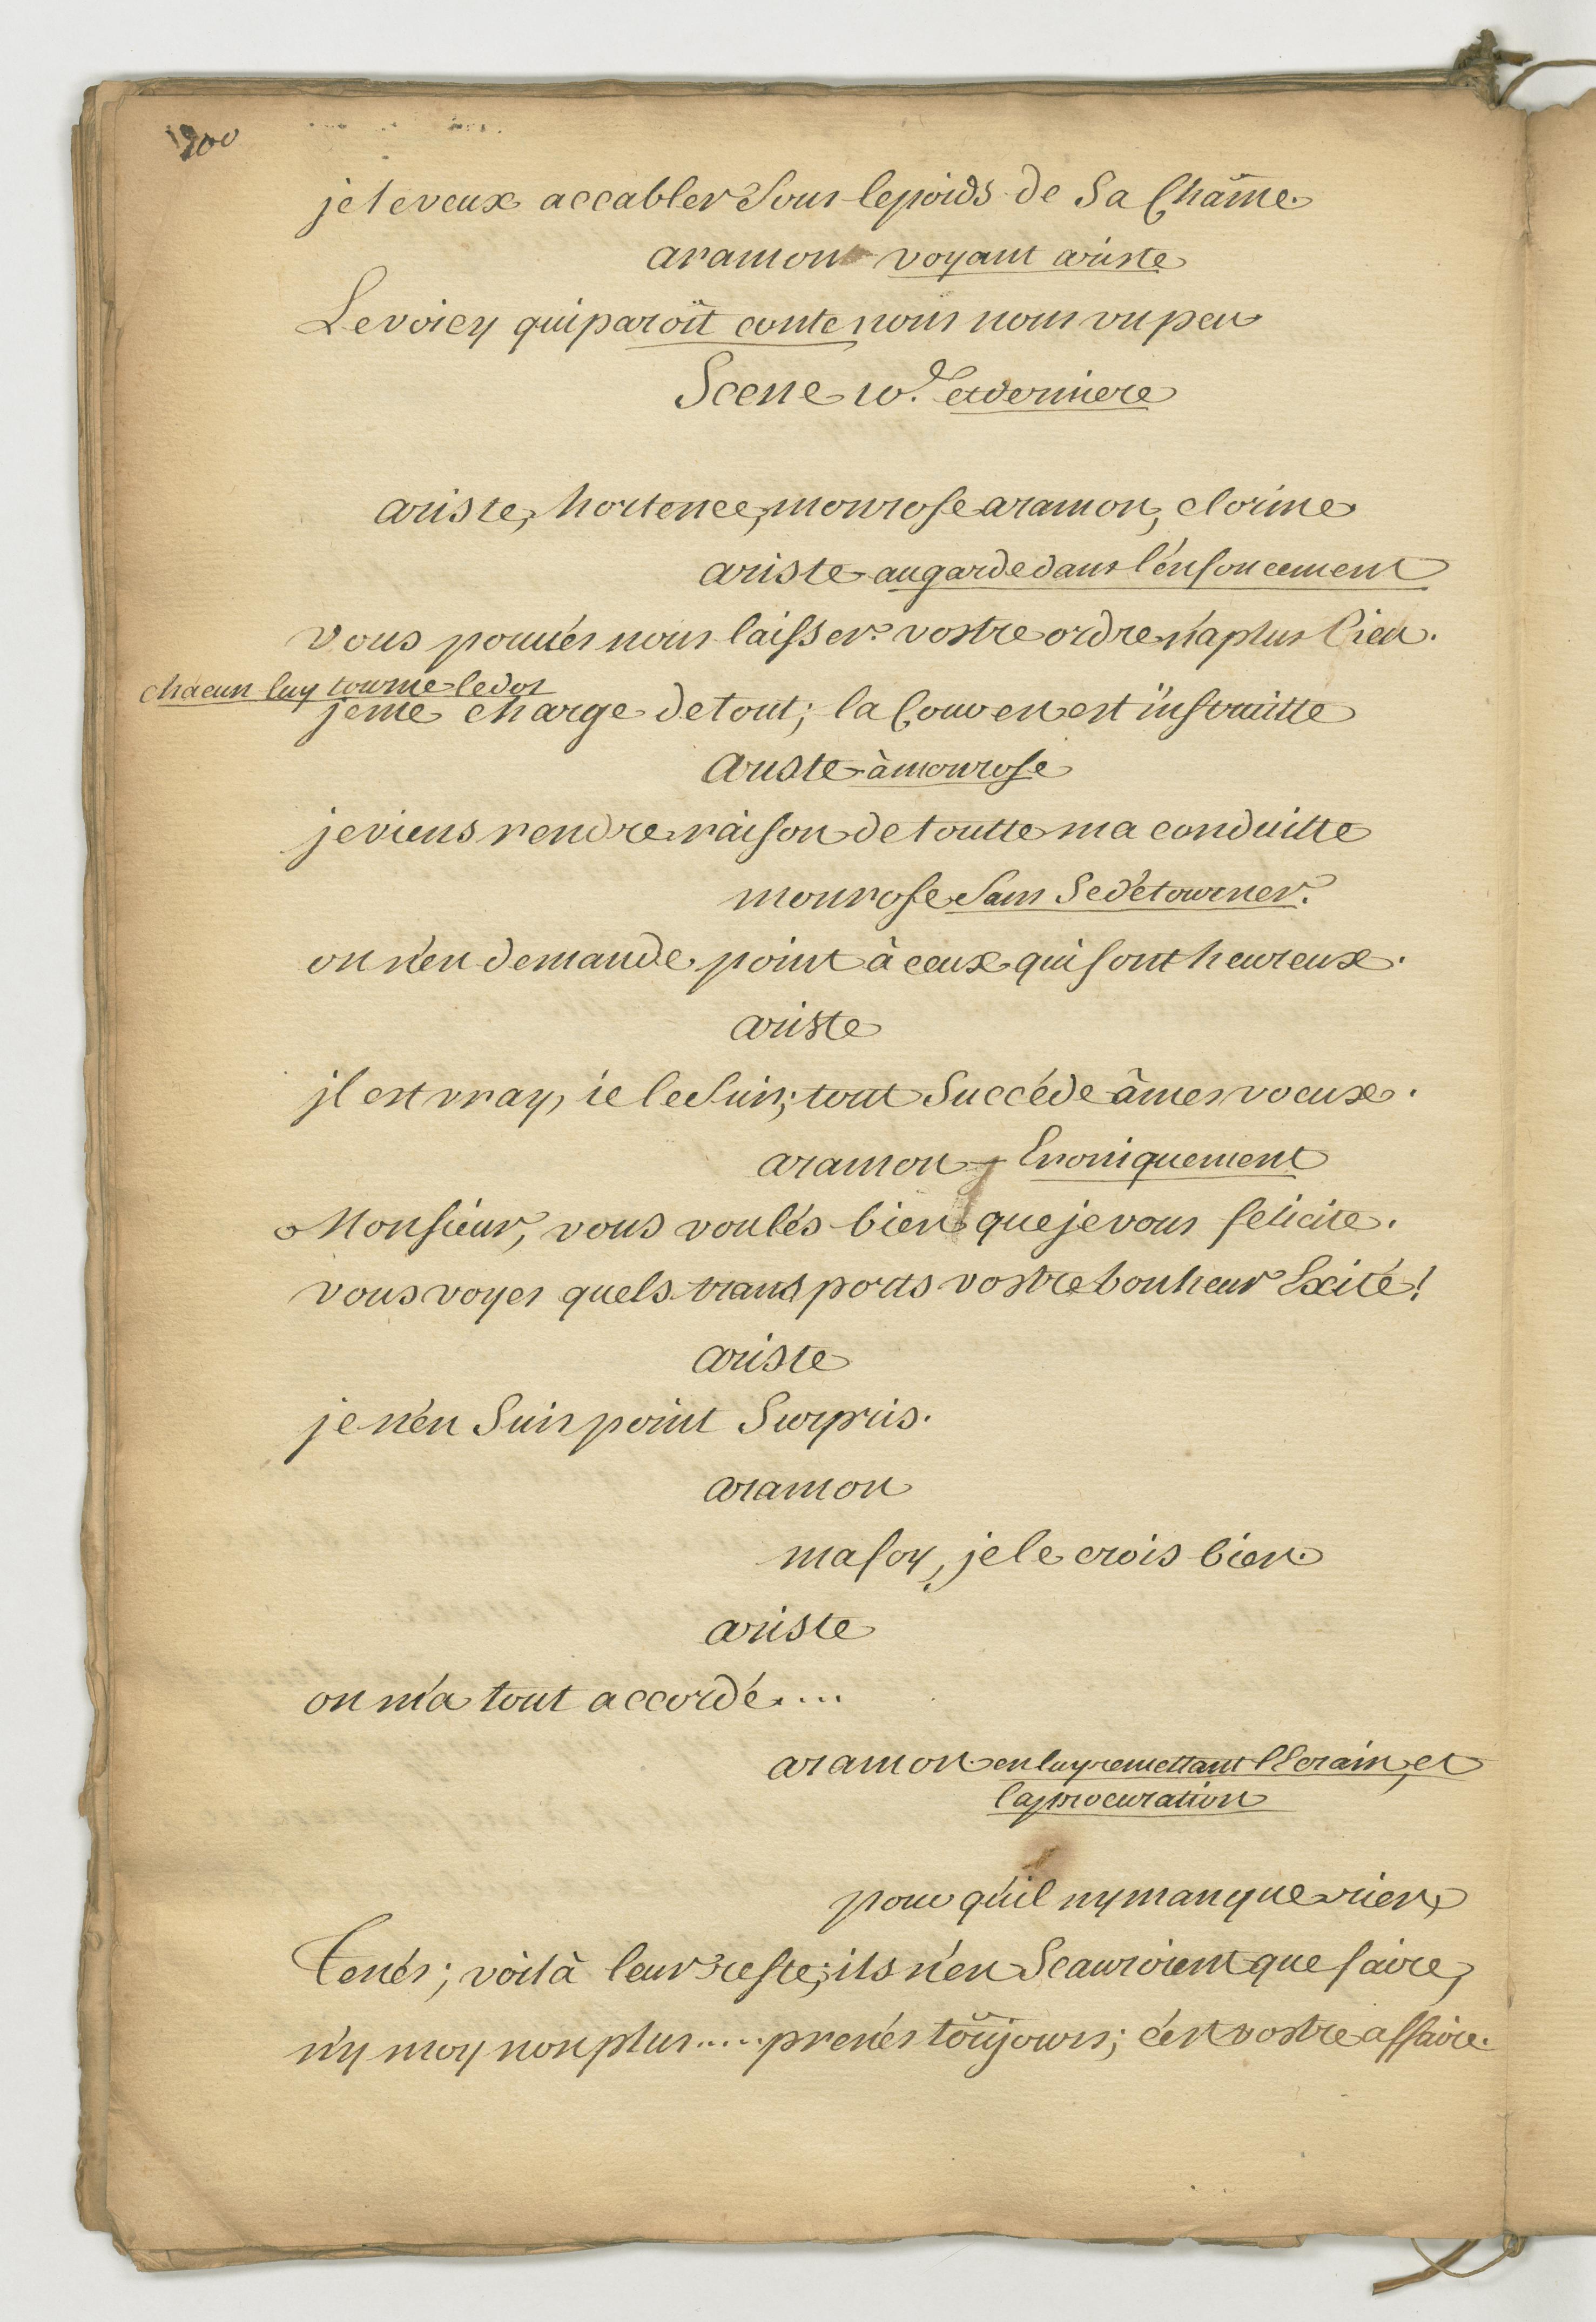 200
je le veux accabler Sous le poids de Sa Chaîne.
aramon voyant ariste
Le voicy qui paroît contenons nous un peu
Scene 10.e et derniere
ariste, hortence, monrose aramon, clorine
ariste au garde dans l'énfoncement
vous pouués nous laisser. vostre ordre n'a plus lieu.
chacun luy tourne le dos
je me charge de tout; la Cour en est instruitte
Ariste à monrose
je viens rendre raison de toutte ma conduitte
monrose Sans Se détourner.
on n'en demande point à ceux qui sont heureux.
ariste
jl est vray, ie le Suis; tout Succéde à mes voeux.
aramon Ironiquement
Monsieur, vous voulés bien que je vous felicite.
vous voyes quels transports vostre bonheur Exite!
ariste
je n'en Suis point Surpris.
aramon
ma foy, je le crois bien.
ariste
on m'a tout accordé....
aramon en luy remettant l'Ecrain, et
la procuration
pour qu'il ny manque rien,
Tenés; voilà leur reste; ils n'en Scauroient que faire,
n'y moy non plus..... prenés toûjours; c'est vostre affaire.